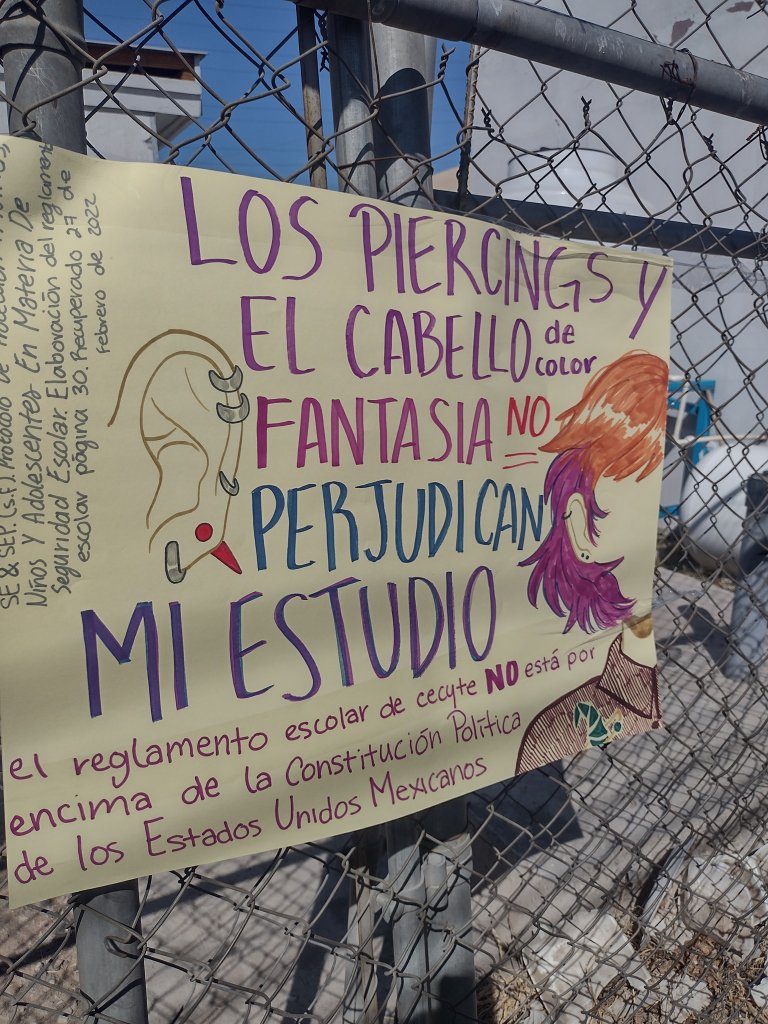 LOS PIERCINGS Y
EL CABELLO de color
FANTASIA NO
PERJUDICAN
MI ESTUDIO
el reglamento escolar de cecyte NO está por
encima de la Constitución Política
de los Estados Unidos Mexicanos
SE & SEP. (s.f.). Protocolo de
Niños Y Adolescentes En Materia De
Seguridad Escolar. Elaboración del reglamento
escolar página 30. Recuperado 27 de
febrero de 2022